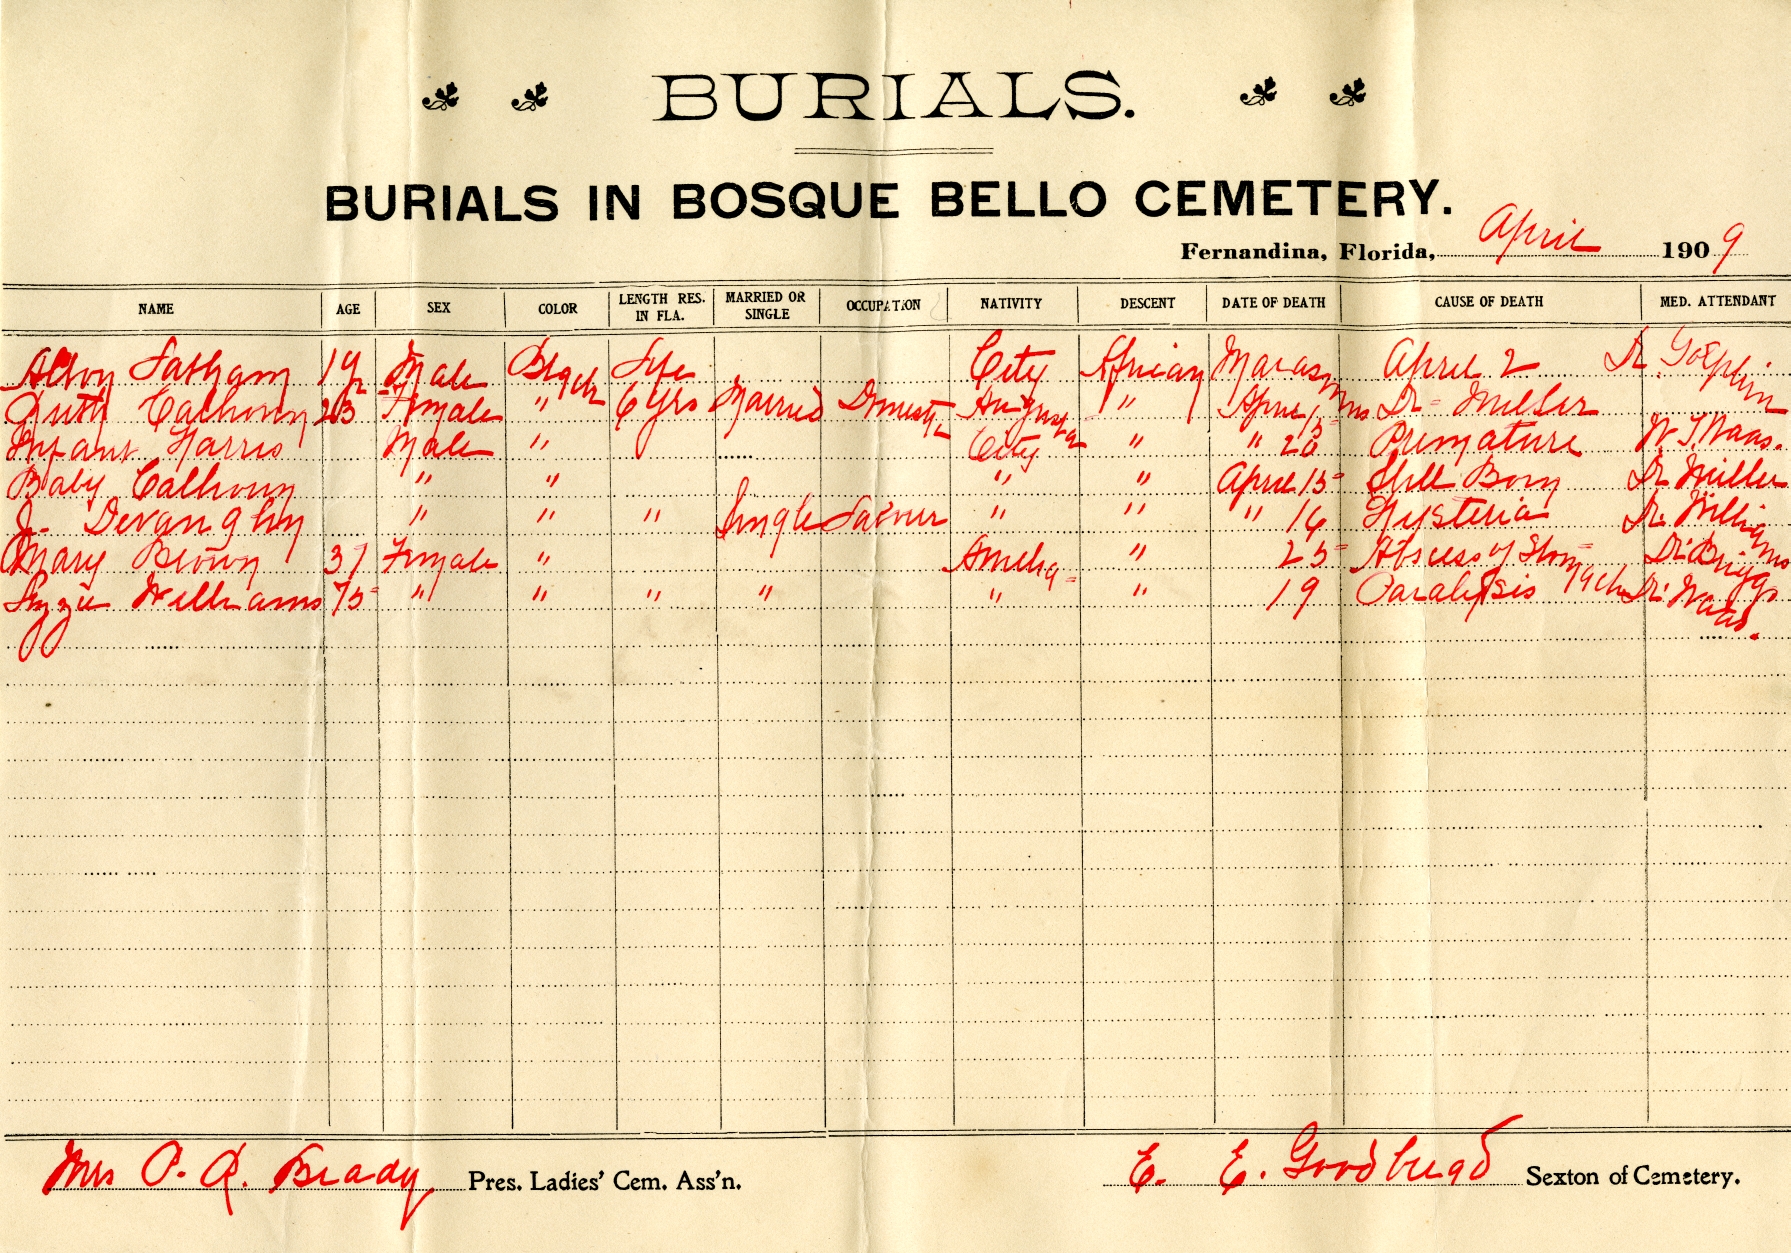 BURIALS.
BURIALS IN BOSQUE BELLO CEMETERY.
Fernandina, Florida, April 1909
NAME AGE SEX COLOR LENGTH RES. IN FLA. MARRIED OR SINGLE OCCUPATION NATIVITY DESCENT DATE OF DEATH CAUSE OF DEATH MED. ATTENDANT
Male Black Life City African Marasmus April 2 Dr.
Ruth Calhoun Female " 6 yrs Married Augusta " April Dr= Miller
Infant Harris Male " City " " 20 Premature Waas.
Baby Calhoun " " " " April 15= Still Born Dr Miller
" " " Single " " " Hysteria Dr. Williams
Mary Brown 37 Female " Amelia= " 25= Abscess of Stomach Dr. Briggs
Lizzie Williams 75= " " " " " " 19 Paralysis Dr. Waas.
Mrs Brady Pres. Ladies' Cem. Ass'n.
E. E. Goodbread Sexton of Cemetery.